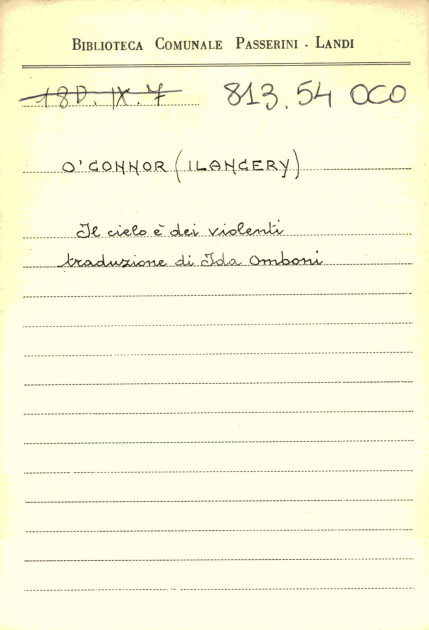 BIBLIOTECA COMUNALE PASSERINI - LANDI
18D. IX. 7 813.54 OCO
O'CONNOR (ILANGERY)
Il cielo è dei violenti
traduzione di Ida Omboni